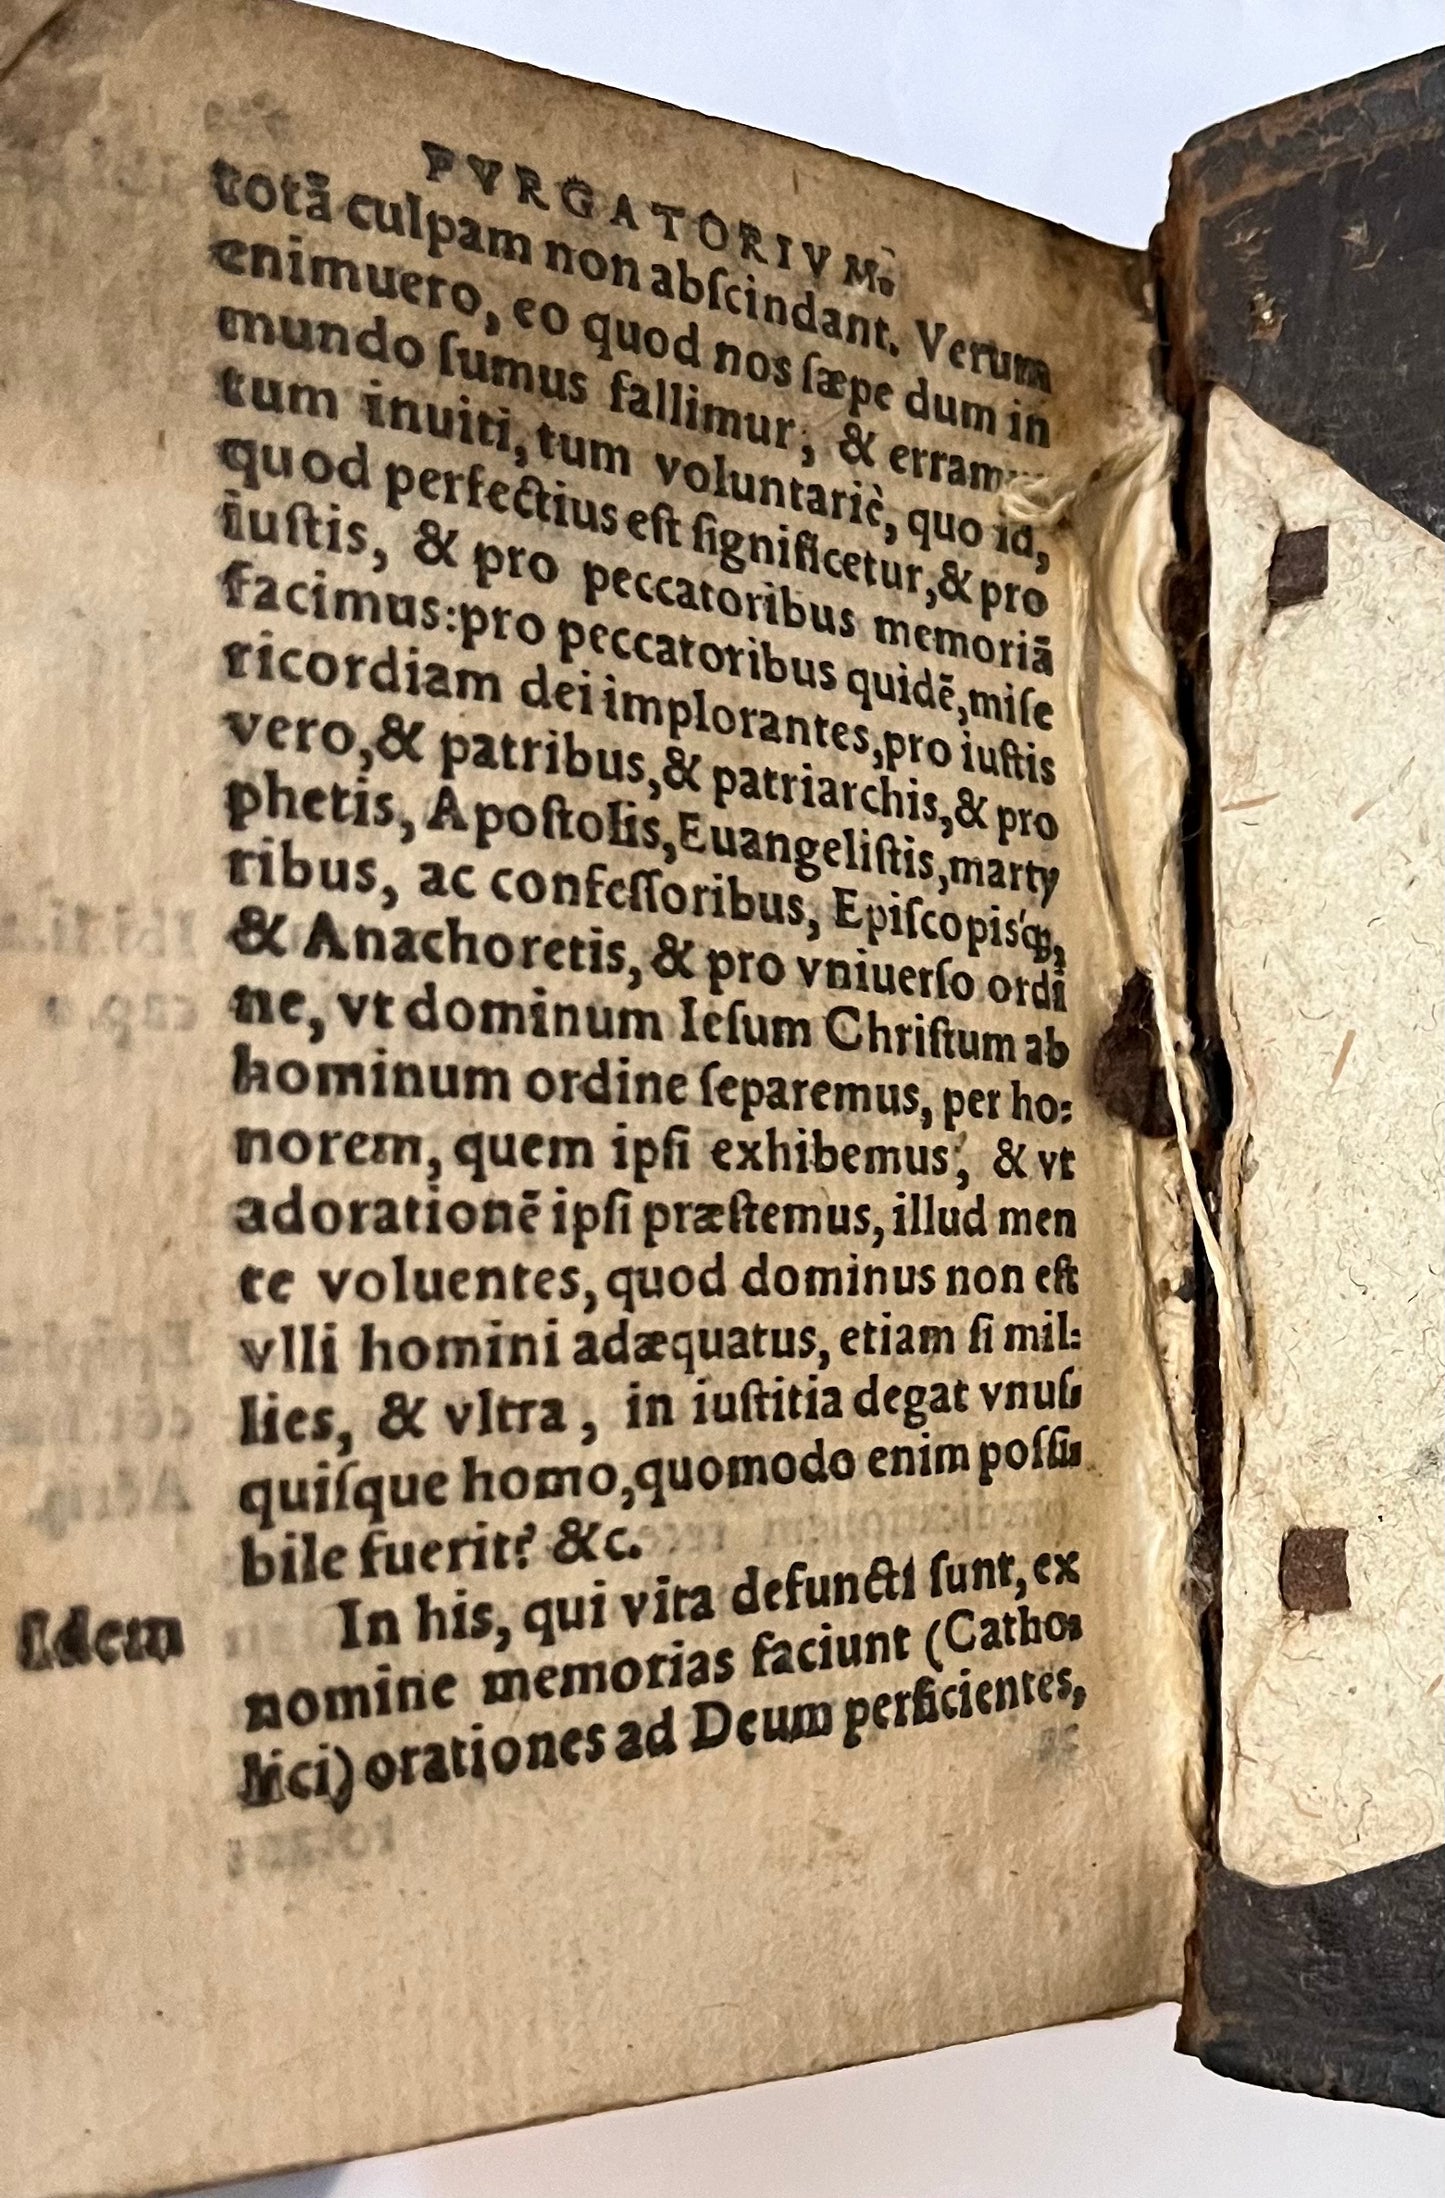 PVRGATORIVM.
totā culpam non abſcindant. Verum
enimuero, eo quod nos ſæpe dum in
mundo ſumus fallimur, & erramus
tum inuiti, tum voluntariè, quo id,
quod perfectius eſt ſignificetur, & pro
iuſtis, & pro peccatoribus memoriā
facimus: pro peccatoribus quidē, miſe
ricordiam dei implorantes, pro iuſtis
vero, & patribus, & patriarchis, & pro
phetis, Apoſtolis, Euangeliſtis, marty
ribus, ac confeſſoribus, Epiſcopisq́;,
& Anachoretis, & pro vniuerſo ordi
ne, vt dominum Ieſum Chriſtum ab
hominum ordine ſeparemus, per ho:
norem, quem ipſi exhibemus, & vt
adorationē ipſi præſtemus, illud men
te voluentes, quod dominus non eſt
vlli homini adæquatus, etiam ſi mil:
lies, & vltra, in iuſtitia degat vnuſ:
quiſque homo, quomodo enim poſſi:
bile fuerit? &c.
Idem In his, qui vita defuncti ſunt, ex
nomine memorias faciunt (Catho:
lici) orationes ad Deum perficientes,